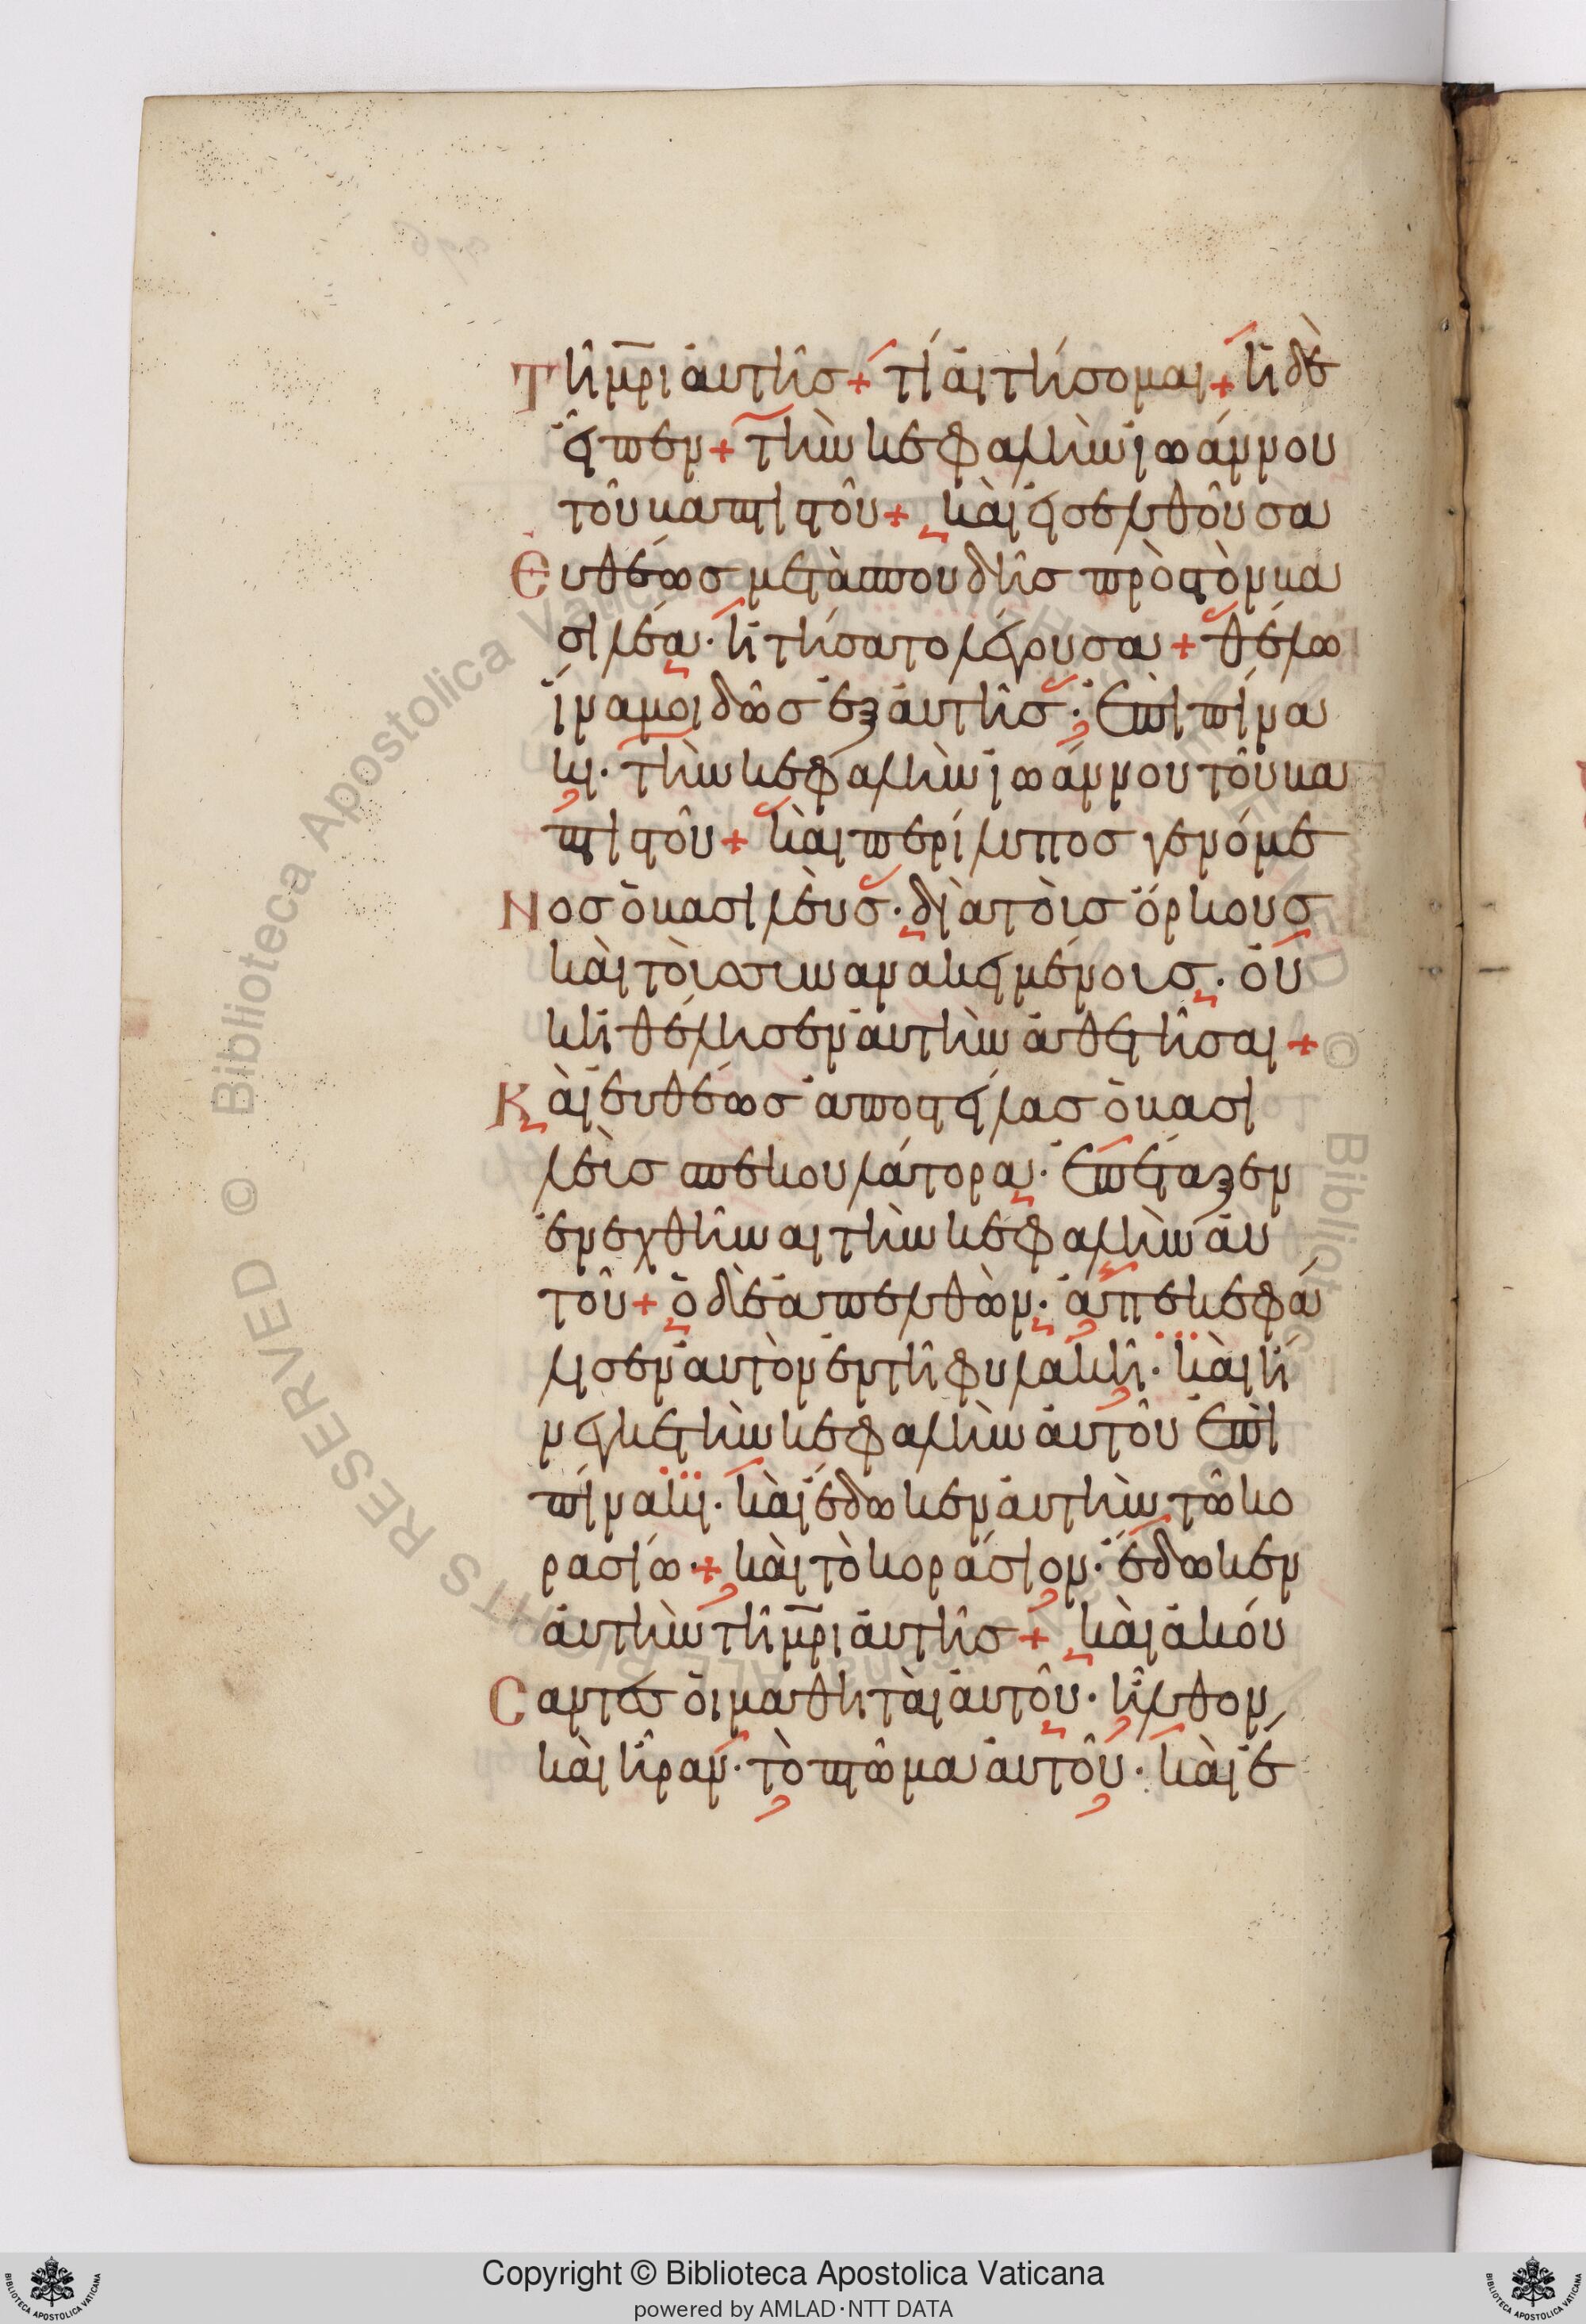 Τῆ μρι ἀυτῆσ + τί ἀιτήσομαι + ἡ δὲ
εἶπεν + τὴν κεφαλὴν ἰωάννου
τοῦ βαπτιστοῦ + καὶ εἰσελθοῦσα
Ἐυθέωσ μετὰ σπουδῆσ πρὸσ τὸν βα
σιλέα · ἠτήσατο λέγουσα + θέλω
ἵνα μοι δῶσ ἐξ ἀυτῆσ · ἐπὶ πίνα
κι · τὴν κεφαλὴν ἰωάννου τοῦ βα
πτιστοῦ + καὶ περίλυποσ γενόμε
Νοσ ὁ βασιλεὺσ · διὰ τοὺσ ὅρκουσ
καὶ τοὺσ συνανακειμένουσ · οὐ
κ ἠθέλησεν ἀυτὴν ἀθετῆσαι +
Καὶ ἐυθέωσ ἀποστείλασ ὁ βασι
λεὺσ σπεκουλάτορα · ἐπέταξεν
ἐνεχθῆναι τὴν κεφαλὴν ἀυ
τοῦ + ὁ δὲ ἀπελθὼν · ἀπεκεφά
λισεν ἀυτὸν ἐν τῆ φυλακῆ · καὶ ἤ
νεγκε τὴν κεφαλὴν ἀυτοῦ ἐπὶ
πίνακι · καὶ ἔδωκεν ἀυτὴν τῶ κο
ρασίω + καὶ τὸ κοράσιον · ἔδωκεν
ἀυτὴν τῆ μρι ἀυτῆσ + καὶ ἀκόυ
Σαντεσ ὁι μαθηταὶ ἀυτοῦ · ἦλθον
καὶ ἦραν · τὸ πτῶμα ἀυτοῦ · καὶ ἔ
Copyright © Biblioteca Apostolica Vaticana
powered by AMLAD·NTT DATA